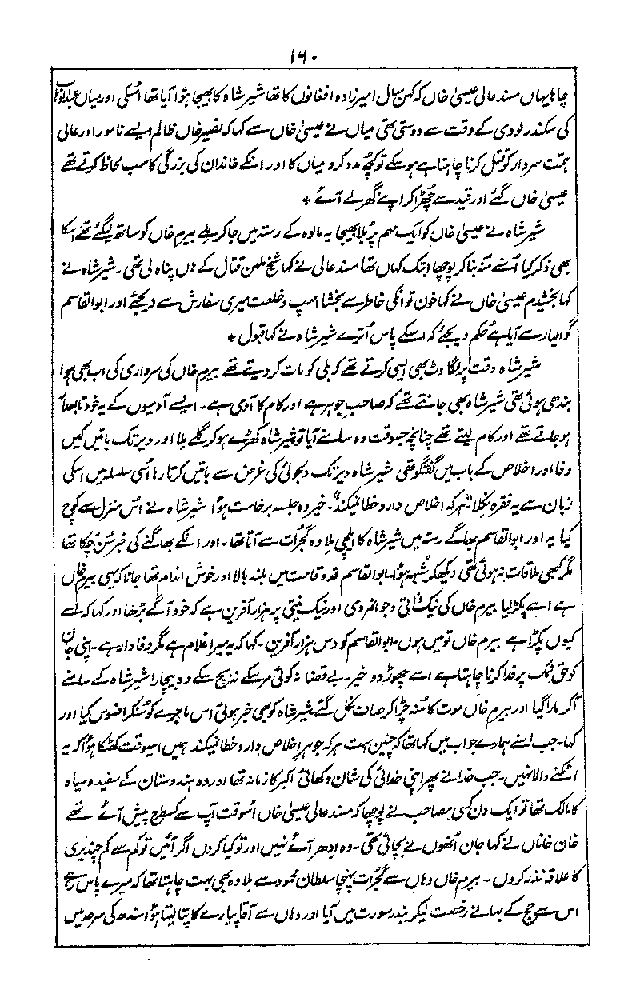 ۱۶۰
چاہا یہاں مسند عالی عیسیٰ خاں کہ کہن سال امیر زادہ افغانوں کا تھا شیر شاہ کا بھیجا ہوا آیا تھا اُسکی اور میاں عبدالوہاب
کی سکندر لودی کے وقت سے دوستی تھی میاں نے عیسیٰ خاں سے کہا کہ نصیر خاں ظالم ایسے نامور اور عالی
ہمت سردار کو قتل کرنا چاہتا ہے ہوسکے تو کچھ مدد کرو میاں کا اور انکے خاندان کی بزرگی کا سب لحاظ کرتے تھے
عیسیٰ خاں گئے اور قید سے چُھڑا کر اپنے گھر لے آئے *
شیر شاہ نے عیسیٰ خاں کو ایک مہم پر بُلا بھیجا یہ مالوہ کے رستہ میں جا کر ملے بیرم خاں کو ساتھ لیگئے تھے اسکا
بھی ذکر کیا اُسنے منہ بنا کر پوچھا ابتک کہاں تھا مسند عالی نے کہا شیخ ملہن قتال کے ہاں پناہ لی تھی۔ شیر شاہ نے
کہا بخشیدم عیسیٰ خاں نے کہا خون تو انکی خاطر سے بخشا اسپ و خلعت میری سفارش سے دیجئے اور ابوالقاسم
گوالیار سے آیا ہے حکم دیجئے کہ اسکے پاس اُترے شیر شاہ نے کہا قبول *
شیر شاہ وقت پر لگاوٹ بھی ایسی کرتے تھے کہ بلی کو مات کر دیتے تھے بیرم خاں کی سرداری کی اب بھی ہوا
بندھی ہوئی تھی شیر شاہ بھی جانتے تھے کہ صاحب جوہر ہے اور کام کا آدمی ہے۔ ایسے آدمیوں کے یہ خود تابعدار
ہو جاتے تھے اور کام لیتے تھے چنانچہ جسوقت وہ سامنے آیا تو شیر شاہ کھڑے ہو کر گلے ملا اور دیر تک باتیں کیں
وفا اور اخلاص کے باب میں گفتگو تھی شیر شاہ دیر تک دلجوئی کی غرض سے باتیں کرتا رہا اسی سلسلہ میں اسکی
زبان سے یہ فقرہ نکلا "ہر کہ اخلاص دارد خطا نیکند"۔ خیر وہ جلسہ برخاست ہوا شیر شاہ نے اس منزل سے کوچ
کیا یہ اور ابوالقاسم بھاگے رستہ میں شیر شاہ کا ایلچی ملا وہ گجرات سے آتا تھا۔ اور انکے بھاگنے کی خبر سُن چکا تھا
مگر کبھی ملاقات نہ ہوئی تھی دیکھکر شبہہ ہوا۔ ابوالقاسم قد و قامت میں بلند بالا اور خوش اندام تھا جانا کہ یہی بیرم خاں
ہے اسے پکڑ لیا بیرم خاں کی نیک ذاتی و جوانمردی اور نیک نیتی پر ہزار آفرین ہے کہ خود آگے بڑھا اور کہا کہ اسے
کیوں پکڑا ہے بیرم خاں تو میں ہوں۔ ابوالقاسم کو دس ہزار آفرین۔ کہا کہ یہ میرا غلام ہے مگر وفادار ہے۔ اپنی جان
کو حق نمک پر فدا کرنا چاہتا ہے اسے چھوڑ دو۔ خیر۔ بے قضا نہ کوئی مر سکے نہ بچ سکے وہ بیچارا شیر شاہ کے سامنے
آکر مارا گیا اور بیرم خاں موت کا منہ چڑا کر صاف نکل گئے شیر شاہ کو بھی خبر ہوئی اس ماجرے کو سُنکر افسوس کیا اور
کہا۔ جب اسنے ہمارے جواب میں کہا تھا کہ چنین ست ہر کہ جوہر اخلاص دارد خطا نیکند ہمیں اسیوقت کھٹکا ہوا کہ یہ
اٹکنے والا نہیں۔ جب خدا نے پھر اپنی خدائی کی شان دکھائی اکبر کا زمانہ تھا اور وہ ہندوستان کے سفید و سیاہ
کا مالک تھا تو ایک دن کسی مصاحب نے پوچھا کہ مسند عالی عیسیٰ خاں اُسوقت آپ سے کسطرح پیش آئے تھے
خان خاناں نے کہا جان اُنھوں نے بچائی تھی۔ وہ اِدھر آئے نہیں اور تو کیا کروں اگر آئیں تو کم سے کم چندیری
کا علاقہ نذر کروں۔ بیرم خاں وہاں سے گجرات پہنچا سلطان محمود سے ملا وہ بھی بہت چاہتا تھا کہ میرے پاس رہے
اس سے حج کے بہانے رخصت لیکر بندر سورت میں آیا اور وہاں سے آقا پیارے کا پتا لیتا ہوا سندھ کی سرحد میں